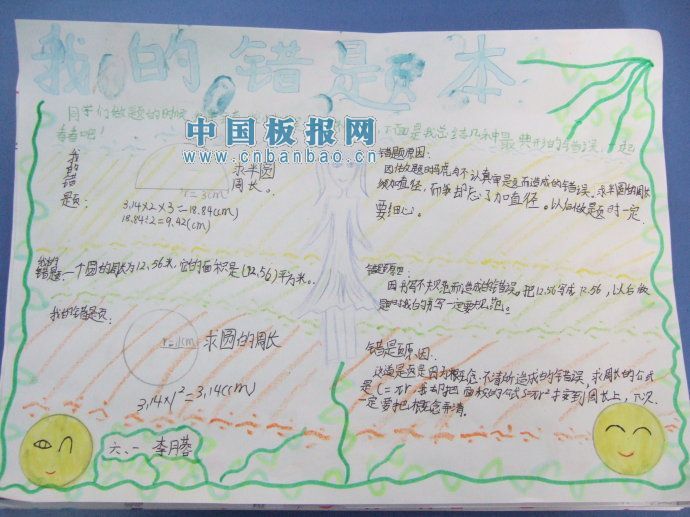 我的错题本
同学们做题的时候
下面是我总结几种最典形的错误,一起
看看吧!
中国板报网
www.cnbanbao.cn
我的错题:
r=3cm
求半圆周长。
3.14×2×3=18.84(cm)
18.84÷2=9.42(cm)
错题原因:
因做题时马虎、不认真审题而造成的错误。求半圆的周长
须加直径,而我却忘了加直径。以后做题时一定
要细心。
我的错题:一个圆的周长为12.56米,它的面积是(12.56)平方米。
错题原因:
因书写不规范而造成的错误。把12.56写成
以后做
题时书写一定要规范。
我的错题:
r=1cm
求圆的周长
3.14×1²=3.14(cm)
错题原因:
这道题是因为概念不清所造成的错误,求周长的公式
是C=
我却把面积的公式S=πr²拿到周长上,
一定要把概念弄清。
六、一 李月蓉